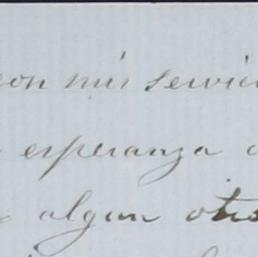 con mis servic
esperanza
algun otro